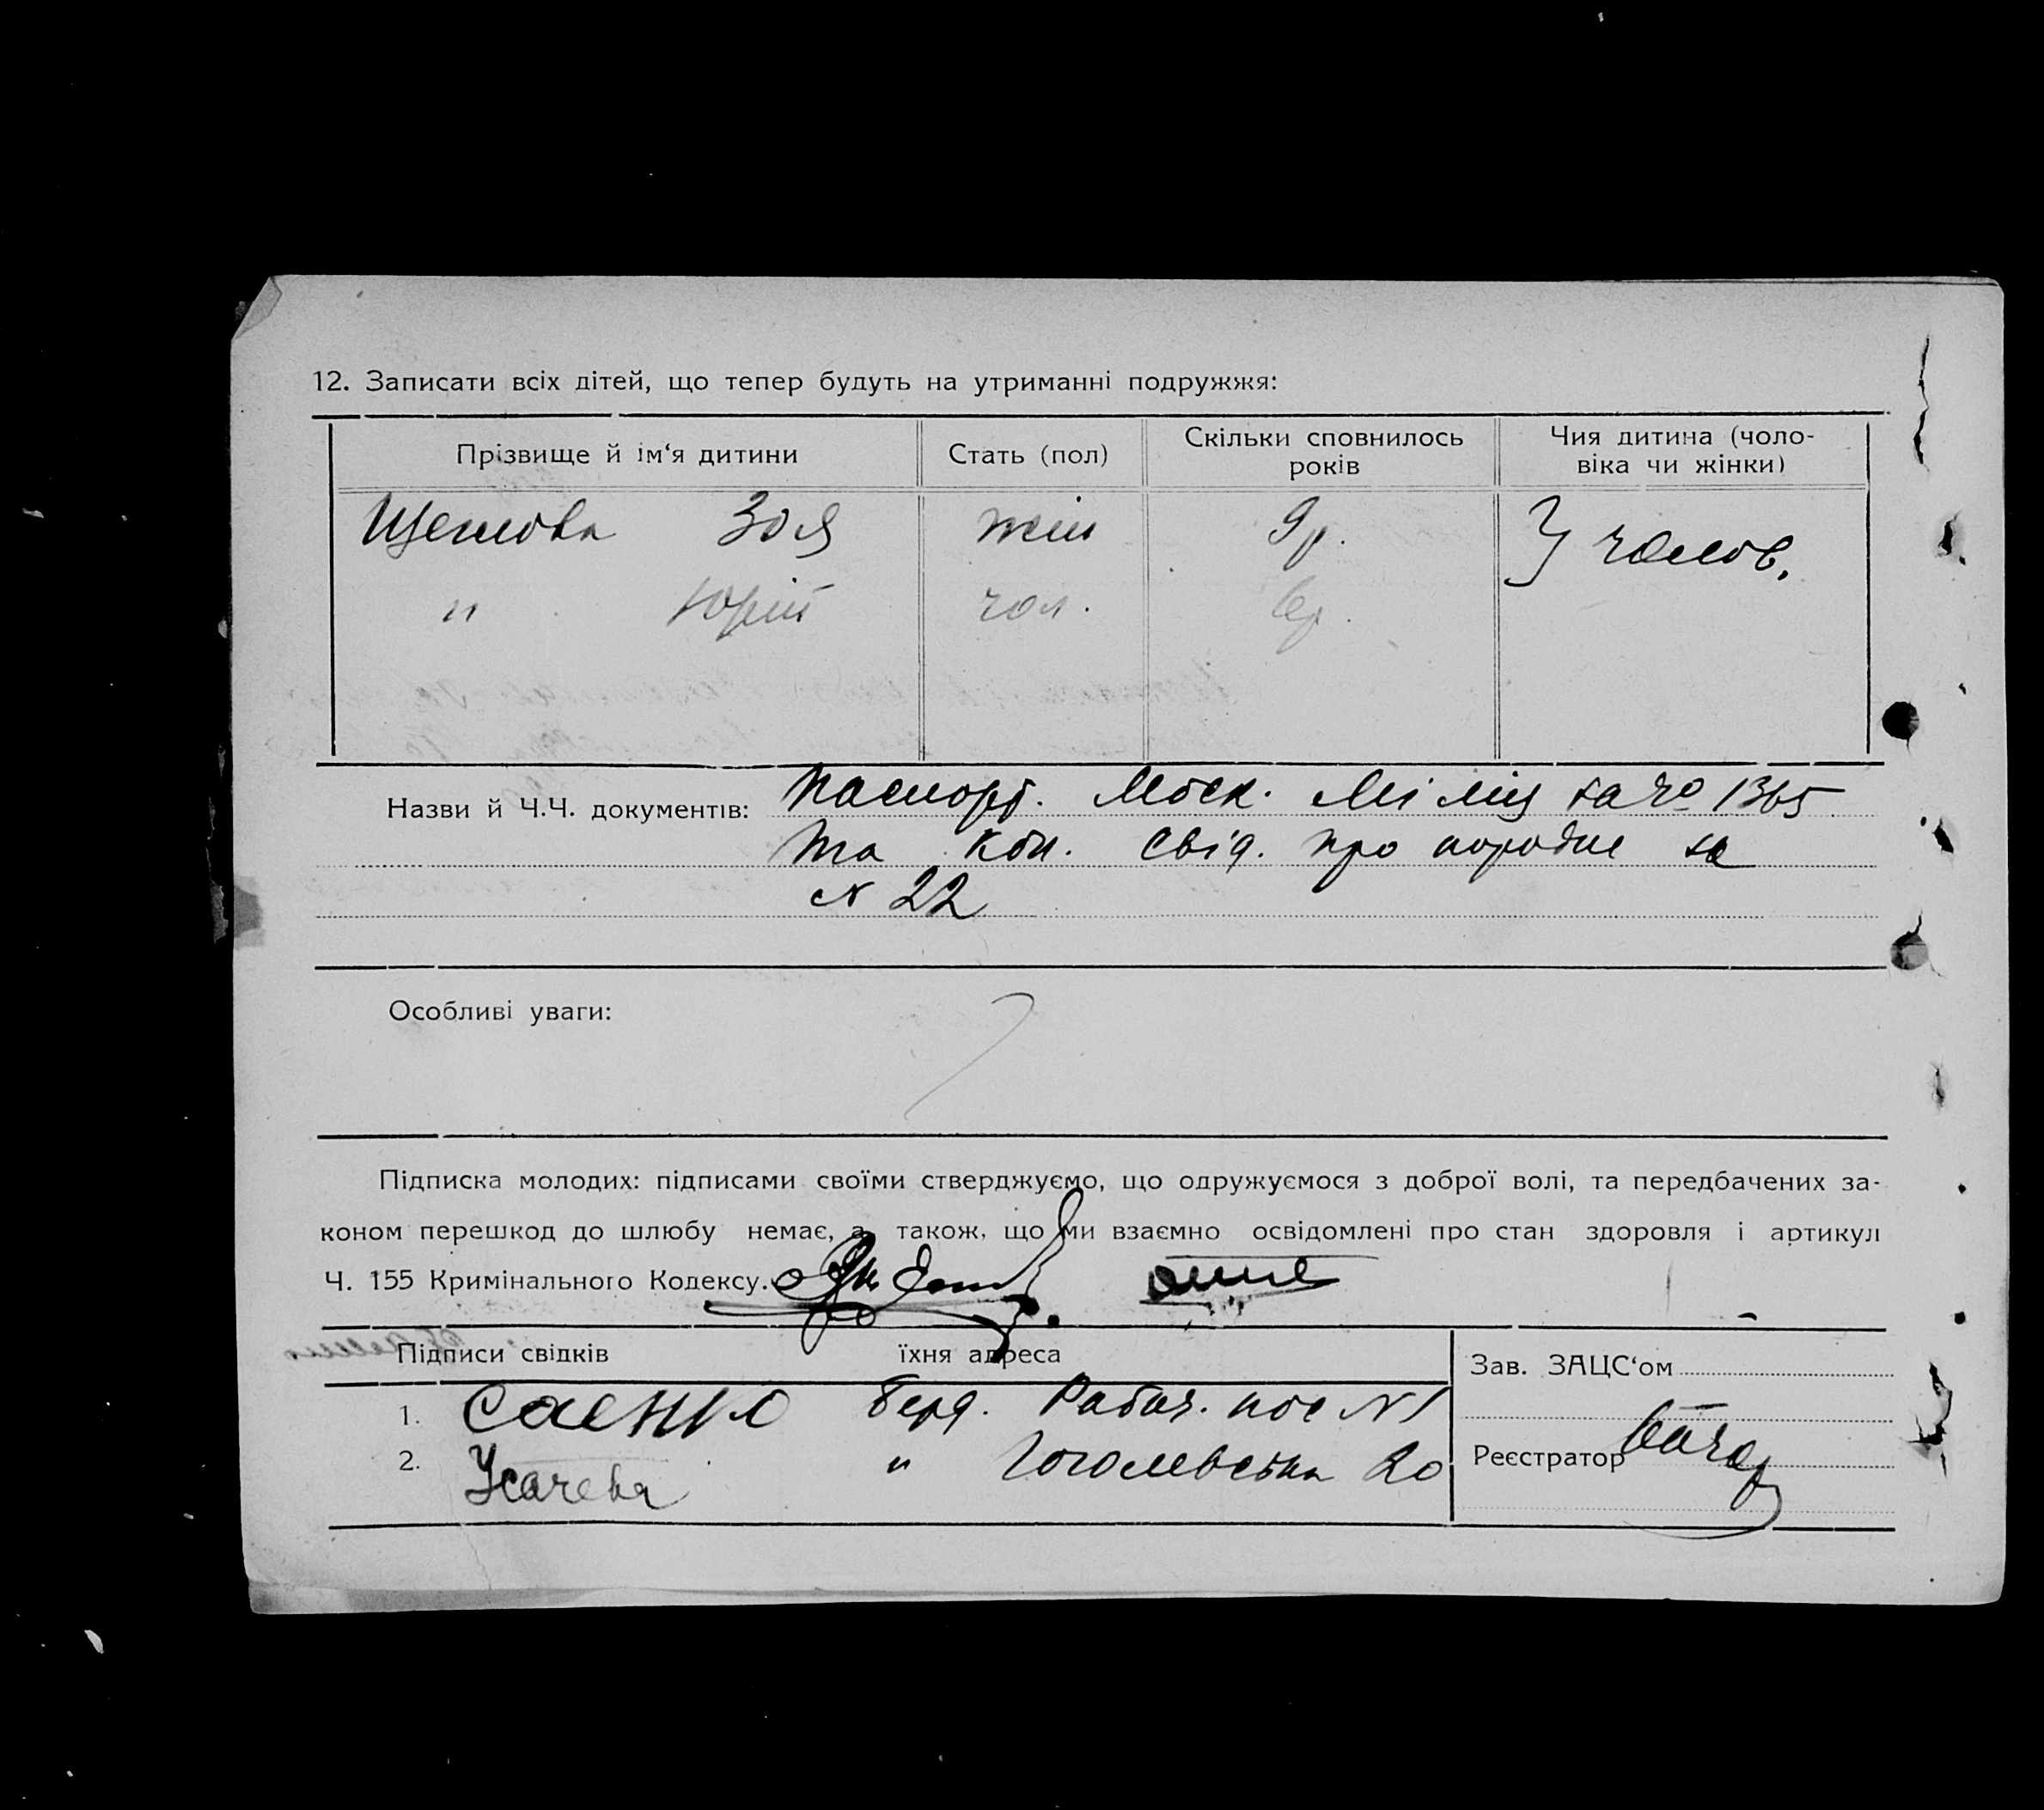 12. Записати всіх дітей, що тепер будуть на утриманні подружжя:
Прізвище й ім‘я дитини
Стать (пол)
Скільки сповнилось
років
Чия дитина (чоло-
віка чи жінки)
Зоя
жін
9р.
У чолов.
" Юрій
чол.
Назви й Ч.Ч. документів: Паспорт. Моск. Міліц за чо 1365
та коп. свід. про породж за
N 22
Особливі уваги:
Підписка молодих: підписами своїми стверджуємо, що одружуємося з доброї волі, та передбачених за-
коном перешкод до шлюбу немає, а також, що ми взаємно освідомлені про стан здоровля і артикул
Ч. 155 Кримінального Кодексу.
Підписи свідків
їхня адреса
Зав. ЗАЦС‘ом
1. Саенко Берд. Рабоч. пос N 1
2. Усачева " Гоголевська 20
Реєстратор